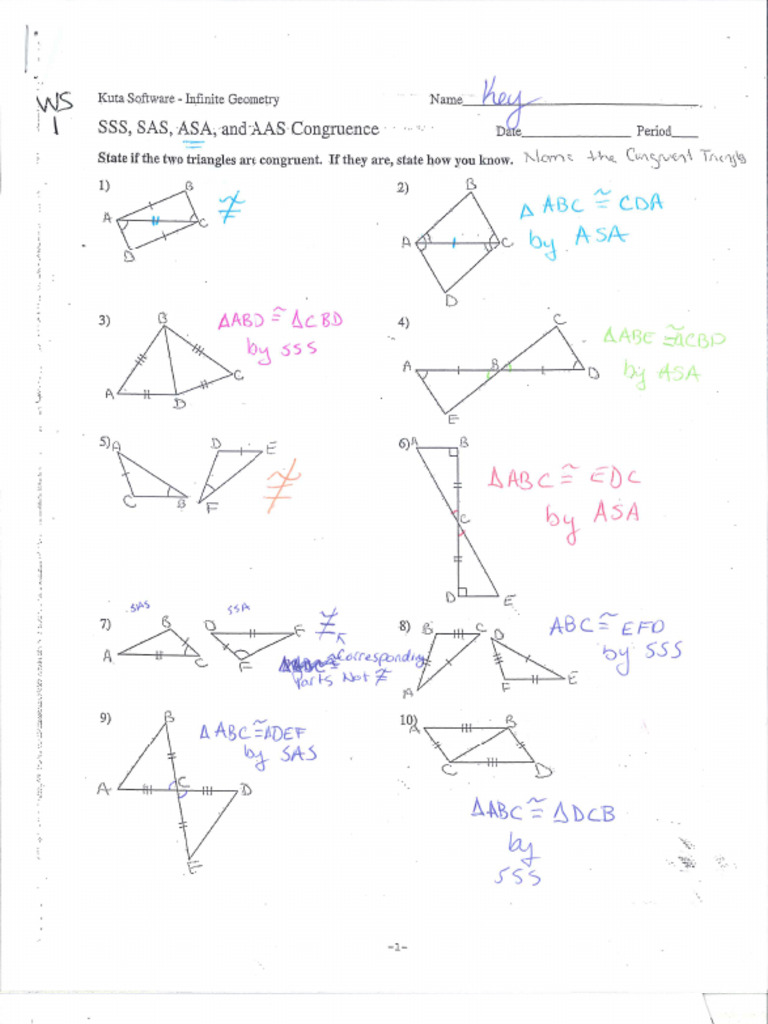 WS
1
Kuta Software - Infinite Geometry
Name Key
SSS, SAS, ASA, and AAS Congruence
Date Period
State if the two triangles are congruent. If they are, state how you know. Name the Congruent Triangles
1)
A
B
C
D
≇
2)
A
B
C
D
Δ ABC ≅ CDA
by ASA
3)
A
B
C
D
ΔABD ≅ ΔCBD
by SSS
4)
A
B
C
D
E
ΔABE ≅ ΔCBD
by ASA
5)
A
B
C
D
E
F
≇
6)
A
B
C
D
E
ΔABC ≅ EDC
by ASA
7)
SAS
SSA
A
B
C
D
F
E
≇
Corresponding
parts Not ≇
8)
B
C
A
D
F
E
ABC ≅ EFD
by SSS
9)
B
A
C
D
E
ΔABC ≅ ΔDEF
by SAS
10)
A
B
C
D
ΔABC ≅ ΔDCB
by
SSS
-1-